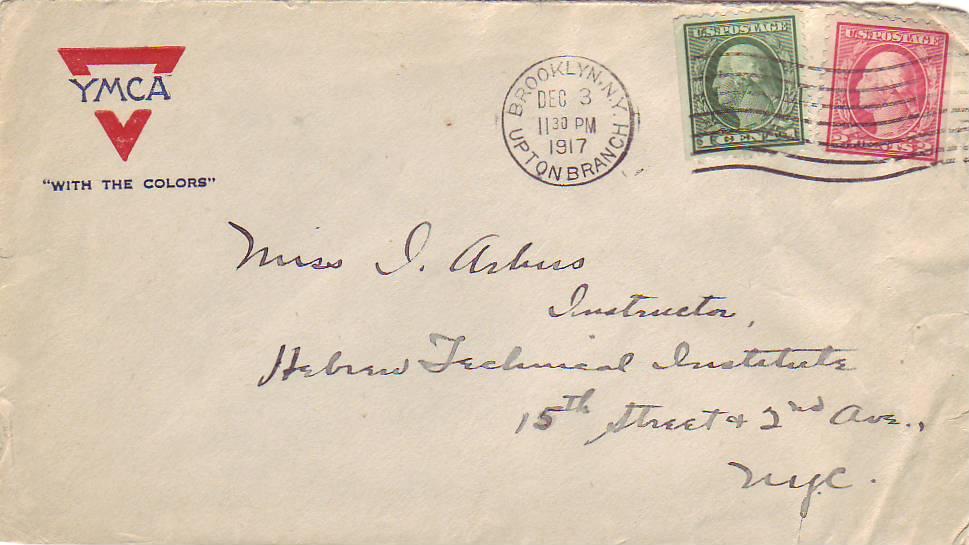 YMCA
"WITH THE COLORS"
BROOKLYN, N.Y.
DEC 3
11 30 PM
1917
UPTON BRANCH
U.S. POSTAGE
1 CENT 1
U.S. POSTAGE
2 CENTS 2
Miss I. Arbus
Instructor,
Hebrew Technical Institute
15th Street & 2nd Ave.,
N.Y.C.